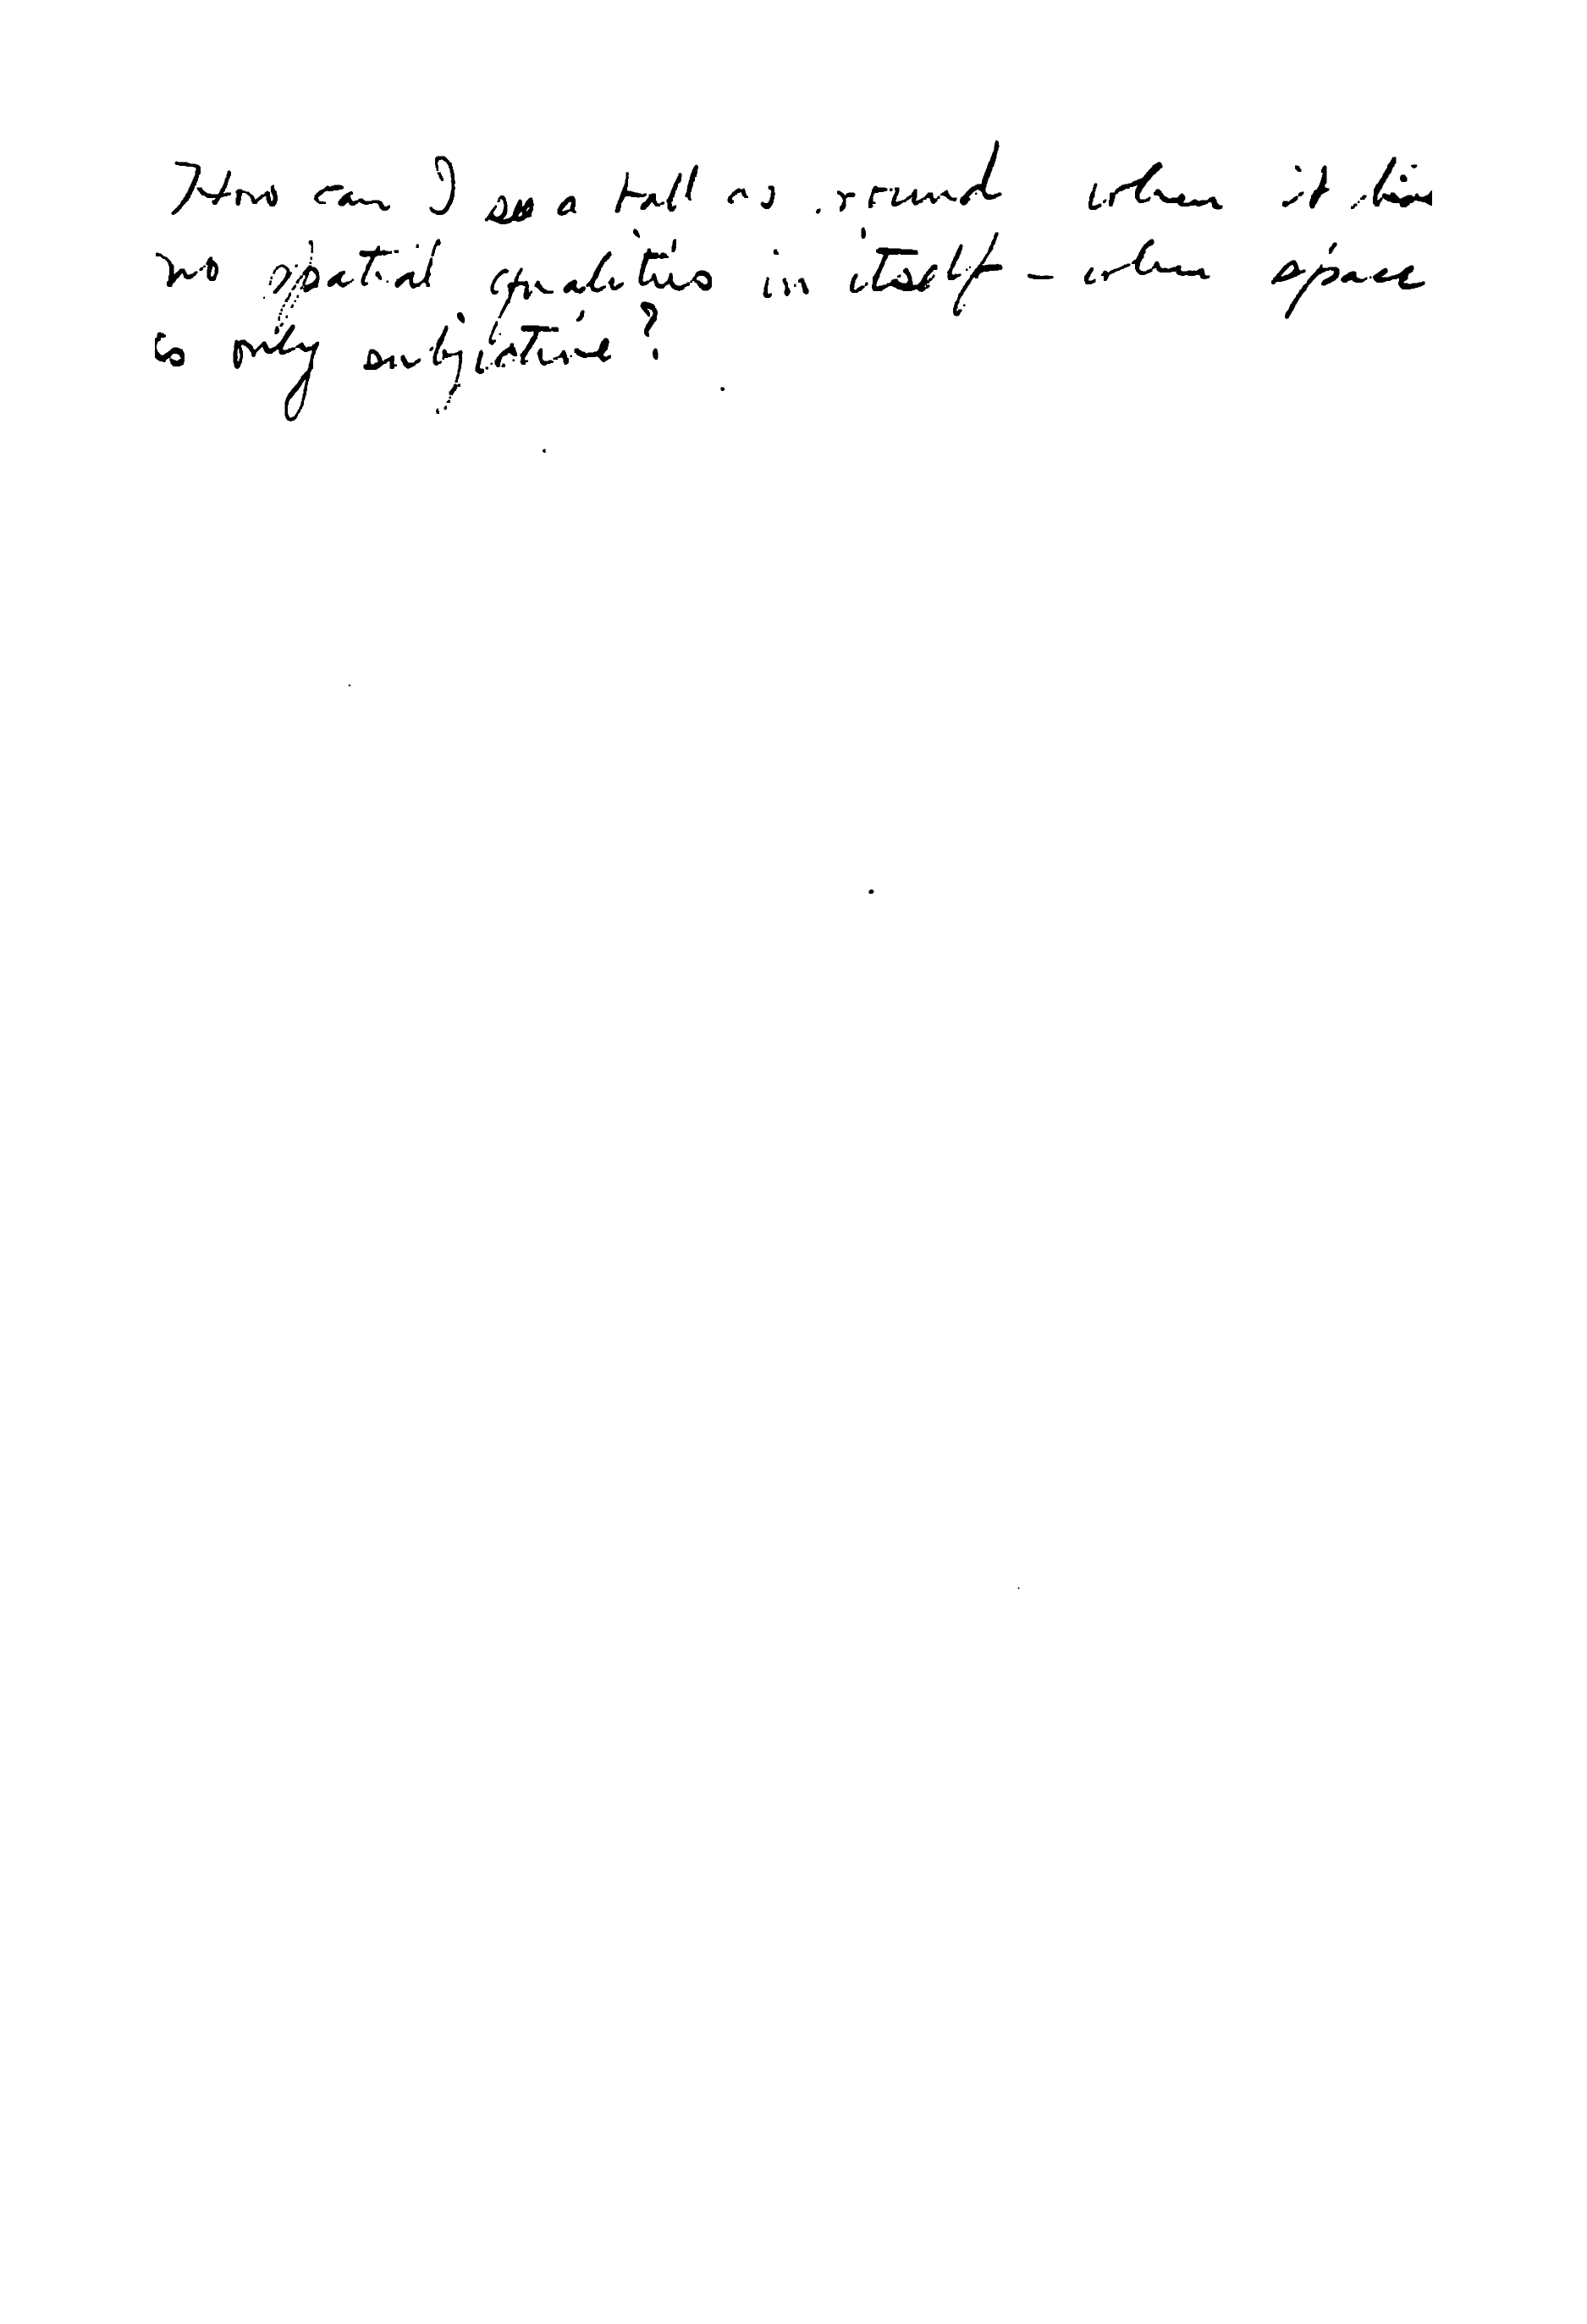 How can I see a ball as round when it has
no spatial qualities in itself – when space
is only subjective?